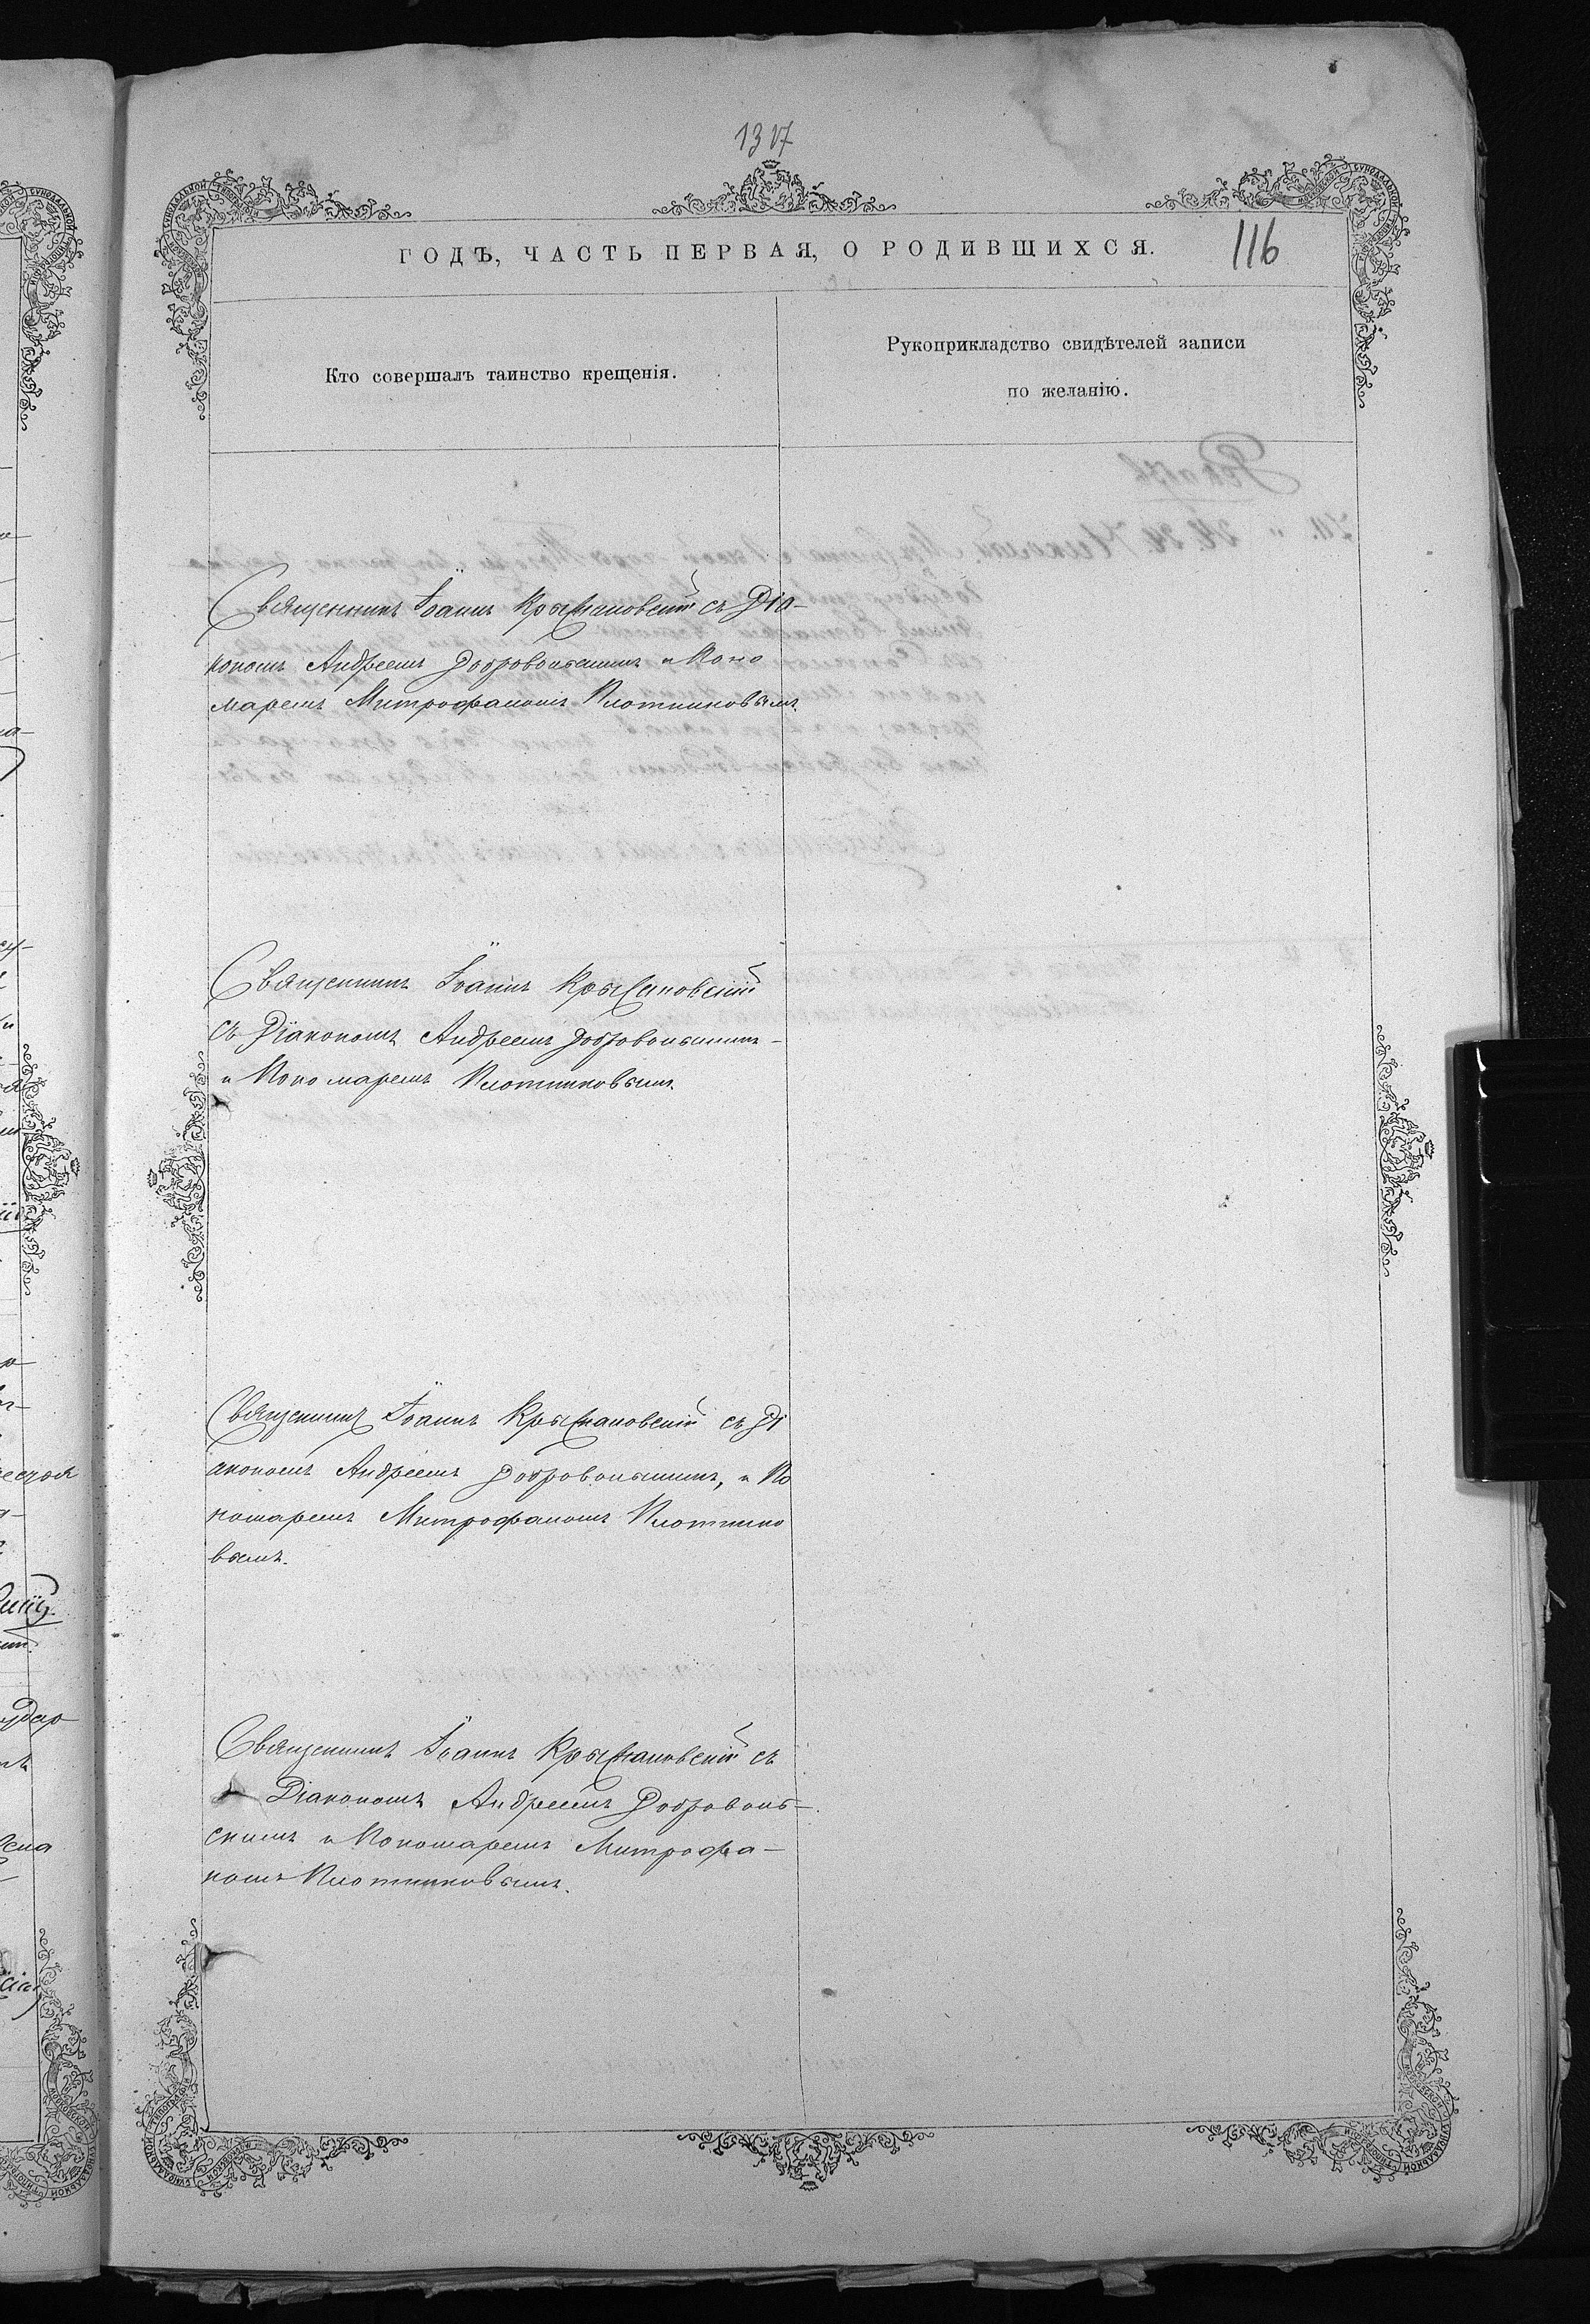 1317
ГОДЪ, ЧАСТЬ ПЕРВАЯ, О РОДИВШИХСЯ.
116
Кто совершалъ таинство крещенія.
Рукоприкладство свидѣтелей записи
по желанію.
Священникъ Іоаннъ Крыжановскій съ Діа-
кономъ Андреемъ Добровольскимъ и Поно
маремъ Митрофаномъ Плотниковымъ.
Священникъ Іоаннъ Крыжановскій
съ Діакономъ Андреемъ Добровольскимъ -
и Пономаремъ Плотниковымъ.
Священникъ Іоаннъ Крыжановскій съ Ді
акономъ Андреемъ Добровольскимъ, и По
номаремъ Митрофаномъ Плотнико
вымъ.
Священникъ Іоаннъ Крыжановскій съ
Діакономъ Андреемъ Доброволь-
скимъ и Пономаремъ Митрофа-
номъ Плотниковымъ.